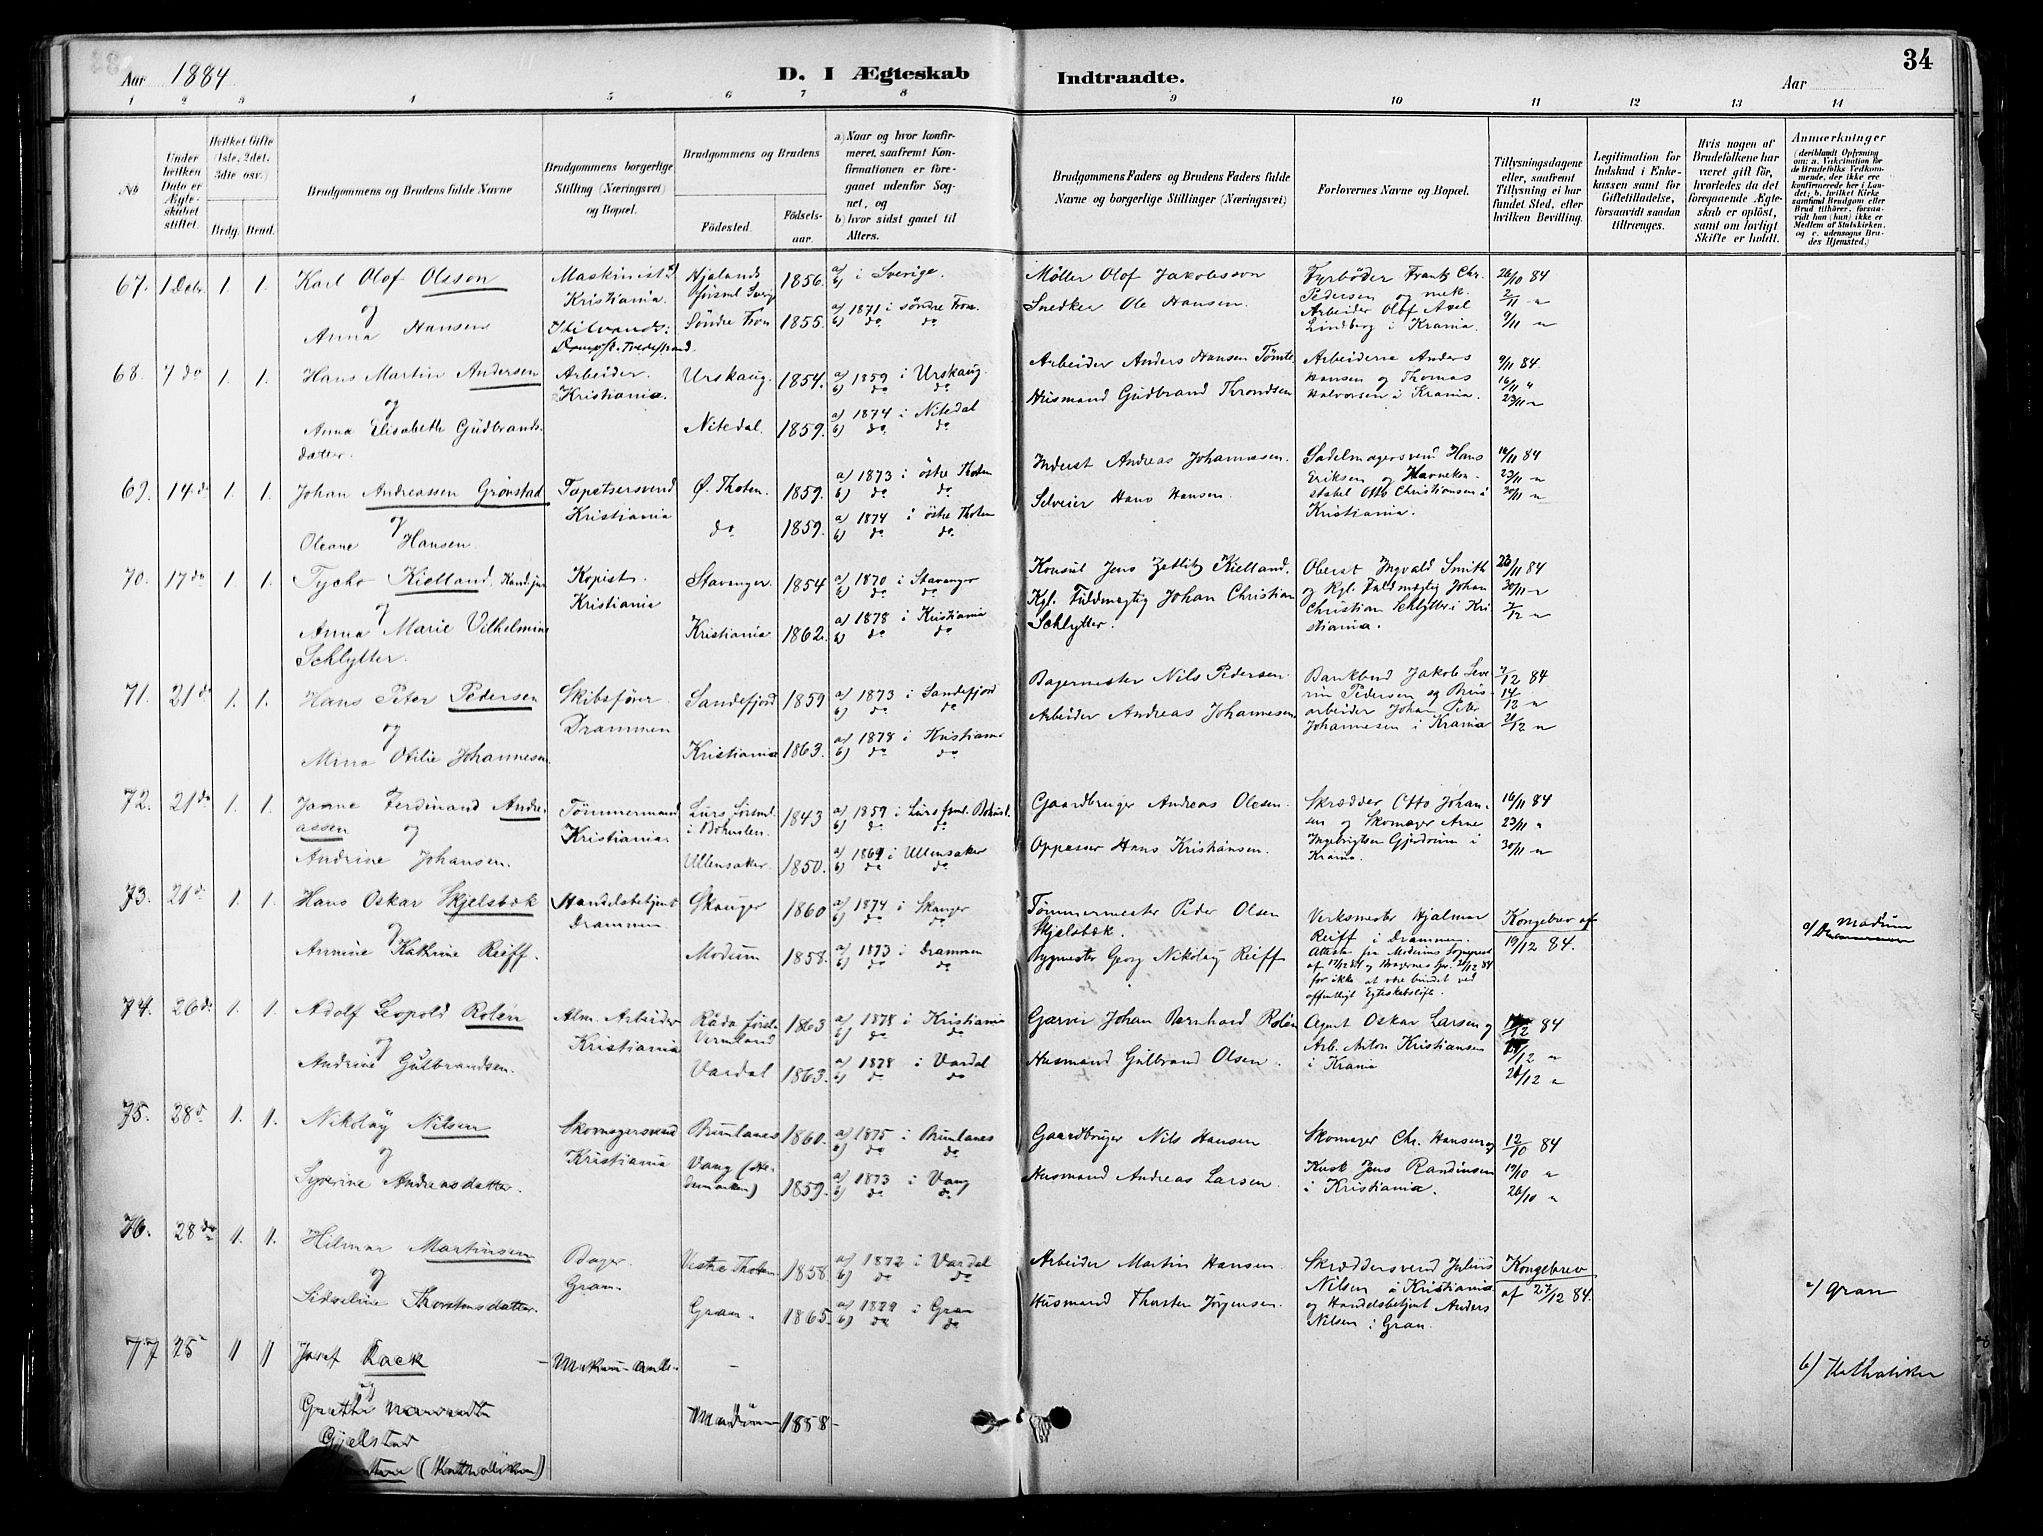 Aar 1884
D. I Ægteskab Indtraadte.
Aar
34
1 2 3 4 5 6 7 8 9 10 11 12 13 14
No
Under hvilken Dato er Ægteskabet stiftet.
Hvilket Gifte (1ste, 2det, 3die osv.)
Brdg. Brud.
Brudgommens og Brudens fulde Navne
Brudgommens borgerlige Stilling (Næringsvei) og Bopæl.
Brudgommens og Brudens
Fødested. Fødselsaar.
a) Naar og hvor konfirmeret, saafremt Konfirmationen er foregaaet udenfor Sognet, og
b) hvor sidst gaaet til Alters.
Brudgommens Faders og Brudens Faders fulde Navne og borgerlige Stillinger (Næringsvei)
Forlovernes Navne og Bopæl.
Tillysningsdagene eller, saafremt Tillysning ei har fundet Sted, efter hvilken Bevilling.
Legitimation for Indskud i Enkekassen samt for Giftetilladelse, forsaavidt saadan tiltrænges.
Hvis nogen af Brudefolkene har været gift før, hvorledes da det foregaaende Ægteskab er opløst, samt om lovligt Skifte er holdt.
Anmærkninger
67. 1 Decbr. 1. 1.
Karl Olof Olsson
og
Anna Hansen
Maskinist
Kristiania.
1856.
a) i Sverige.
b)
Søndre Fron 1855.
a) 1871 i søndre Fron.
b) do do
Møller Olof Jakobsson
Snedker Ole Hansen.
Fyrbøder Frantz Chr.
Pedersen og mek.
Arbeider Olof Axel
Lindberg i Krania.
26/10 84
2/11 "
9/11 "
68. 7 do 1. 1.
Hans Martin Andersen
og
Anna Elisabeth Gudbrands-
datter.
Arbeider.
Kristiania.
Urskaug. 1854.
a) 1859 i Urskaug.
b) do do
Nitedal. 1859.
a) 1874 i Nitedal
b) do do
Arbeider Anders Hansen Tømte
Husmand Gudbrand Throndsen
Arbeiderne Anders
Hansen og Thomas
Halvorsen i Krania.
9/11 84.
16/11 "
23/11 "
69. 14 do 1. 1.
Johan Andreassen Grønstad
og
Oleane Hansen.
Tapetsersvend
Kristiania
Ø. Thoten. 1859.
a) 1873 i østre Thoten
b) do do
do 1859.
a) 1874 i østre Thoten
b) do do
Inderst Andreas Johannesen.
Selveier Hans Hansen.
Sadelmagersvend Hans
Eriksen og Havnekon-
stabel Otto Christiansen i
Kristiania.
16/11 84
23/11 "
30/11 "
70. 17 do 1. 1.
Tycho Kielland, Kand. jur.
og
Anna Marie Vilhelmine
Schlytter.
Kopist.
Kristiania
Stavanger. 1854
a) 1870 i Stavanger
b) do do
Kristiania 1862.
a) 1878 i Kristiania
b) do do
Konsul Jens Zetlitz Kielland.
Kgl. Fuldmægtig Johan Christian
Schlytter.
Oberst Ingvald Smith
og Kgl. Fuldmægtig Johan
Christian Schlytter i Kri-
stiania.
23/11 84
30/11 "
7/12 "
71. 21 do 1. 1.
Hans Peter Pedersen
og
Mina Otilie Johannesen.
Skibsfører.
Drammen
Sandefjord 1859
a) 1873 i Sandefjord
b) do do
Kristiania 1863.
a) 1878 i Kristiania
b) do do
Bagermester Nils Pedersen.
Arbeider Andreas Johannesen.
Bankbud Jakob Seve-
rin Pedersen og Brus-
arbeider Johan Peter
Johannesen i Krania
7/12 84
14/12 "
21/12 "
72. 21 do 1. 1.
Janne Ferdinand Andre-
assen og
Andrine Johansen.
Tømmermand
Kristiania.
Lurs Førsml.
i Bohuslen. 1843
a) 1859 i Lurs
b) do do
Ullensaker. 1850.
a) 1864 i Ullensaker
b) do do
Gaardbruger Andreas Olesen.
Oppasser Hans Kristiansen.
Skrædder Otto Johan-
sen og Skomager Arne
Ingebrigtsen Gjerdrum i
Krania.
16/11 84
23/11 "
30/11 "
73. 21 do 1. 1.
Hans Oskar Skjelsbæk
og
Annine Kathrine Reiff.
Handelsbetjent
Drammen
Skauger 1860
a) 1874 i Skauger
b) do do
Modum 1858.
a) 1873 i Drammen
b) do do
Tømmermester Peder Olsen
Skjelsbæk.
Bygmester Georg Nikolay Reiff
Verksmester Hjalmar
Reiff i Drammen.
Attester fra Modums Sognepræst
for ikke at være bundet ved
offentligt Egteskabsløfte.
Kongebrev af
19/12 84.
c) Modum
74. 26 do 1. 1.
Adolf Leopold Rolén
og
Andrine Gulbrandsen.
Alm. Arbeider
Kristiania
Råda Førsl.
Vermland 1863
a) 1878 i Kristiania
b) do do
Vardal 1863.
a) 1878 i Vardal
b) do do
Garver Johan Bernhard Rolén
Husmand Gulbrand Olsen.
Agent Oskar Larsen og
Arb. Anton Kristiansen
i Krania
/12 84
/12 "
26/12 "
75. 28 do 1. 1.
Nikolay Nilsen
og
Syverine Andreasdatter.
Skomagersvend
Kristiania
Brunlanes 1860.
a) 1875 i Brunlanes
b) do do
Vang (He-
demarken) 1859.
a) 1873 i Vang
b) do do
Gaardbruger Nils Hansen
Husmand Andreas Larsen.
Skomager Chr. Hansen og
Kusk Jens Randinsen
i Kristiania.
12/10 84
19/10 "
26/10 "
76. 28 do 1. 1.
Hilmar Martinsen
og
Sidseline Thorstensdatter.
Bager.
Gran.
Vestre Thoten 1858.
a) 1872 i Vardal
b) do do
Gran. 1865.
a) 1879 i Gran
b) do do
Arbeider Martin Hansen
Husmand Thorsten Jørgensen.
Skræddersvend Julius
Nilsen i Kristiania
og Handelsbetjent Anders
Nilsen i Gran.
Kongebrev
af 27/12 84.
c) Gran
77 25 1 1
Josef Rack
og
Gjelstad
(Katholikken)
Modum 1858
b) Katholiker